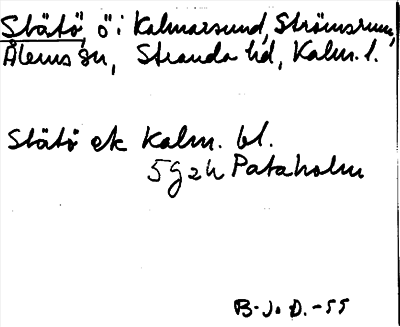 Slätö, ö i Kalmarsund, Strömsrum,
Ålems sn, Stranda hd, Kalm. l.
Slätö ek Kalm. bl.
5 G z h Pataholm
B-J. D. -55